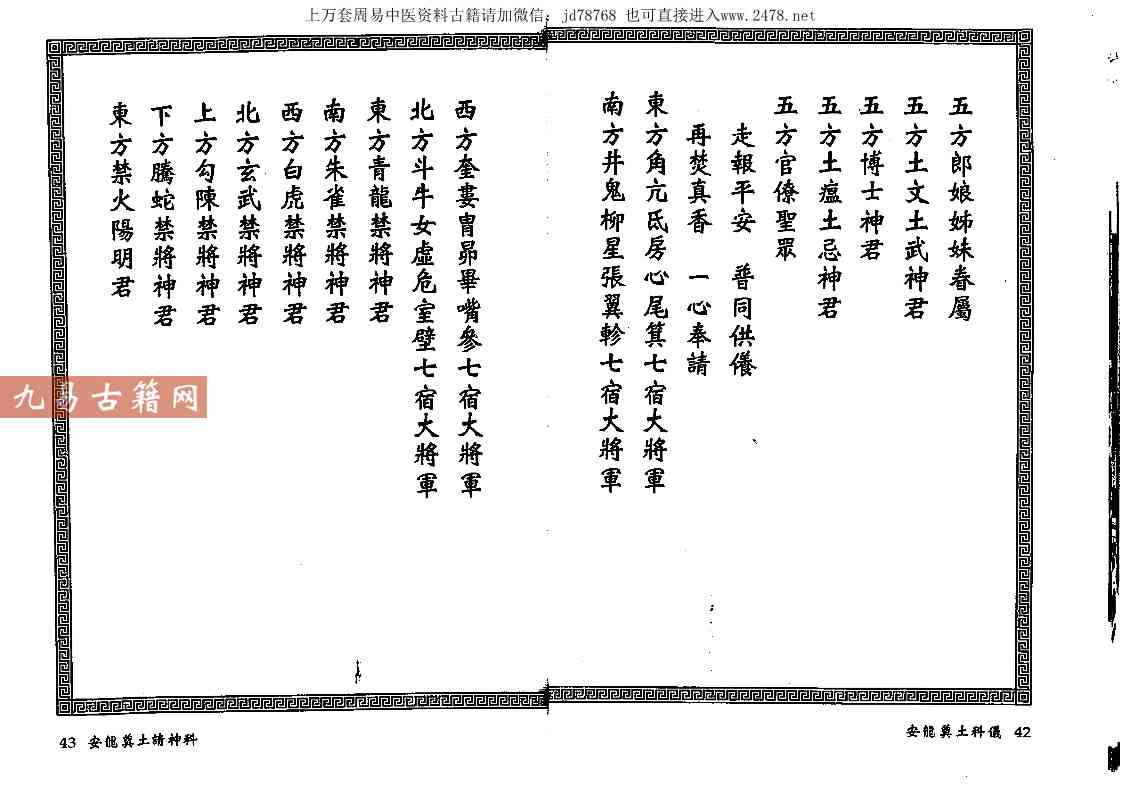 上万套周易中医资料古籍请加微信：jd78768 也可直接进入www.2478.net
五方郎娘姊妹眷屬
五方土文土武神君
五方博士神君
五方土瘟土忌神君
五方官僚聖眾
走報平安 普同供儀
再焚真香 一心奉請
東方角亢氐房心尾箕七宿大將軍
南方井鬼柳星張翼軫七宿大將軍
安龍奠土科儀 42
西方奎婁胃昴畢嘴參七宿大將軍
北方斗牛女虛危室壁七宿大將軍
東方青龍禁將神君
南方朱雀禁將神君
西方白虎禁將神君
北方玄武禁將神君
上方勾陳禁將神君
下方騰蛇禁將神君
東方禁火陽明君
43 安龍奠土請神科
九易古籍网